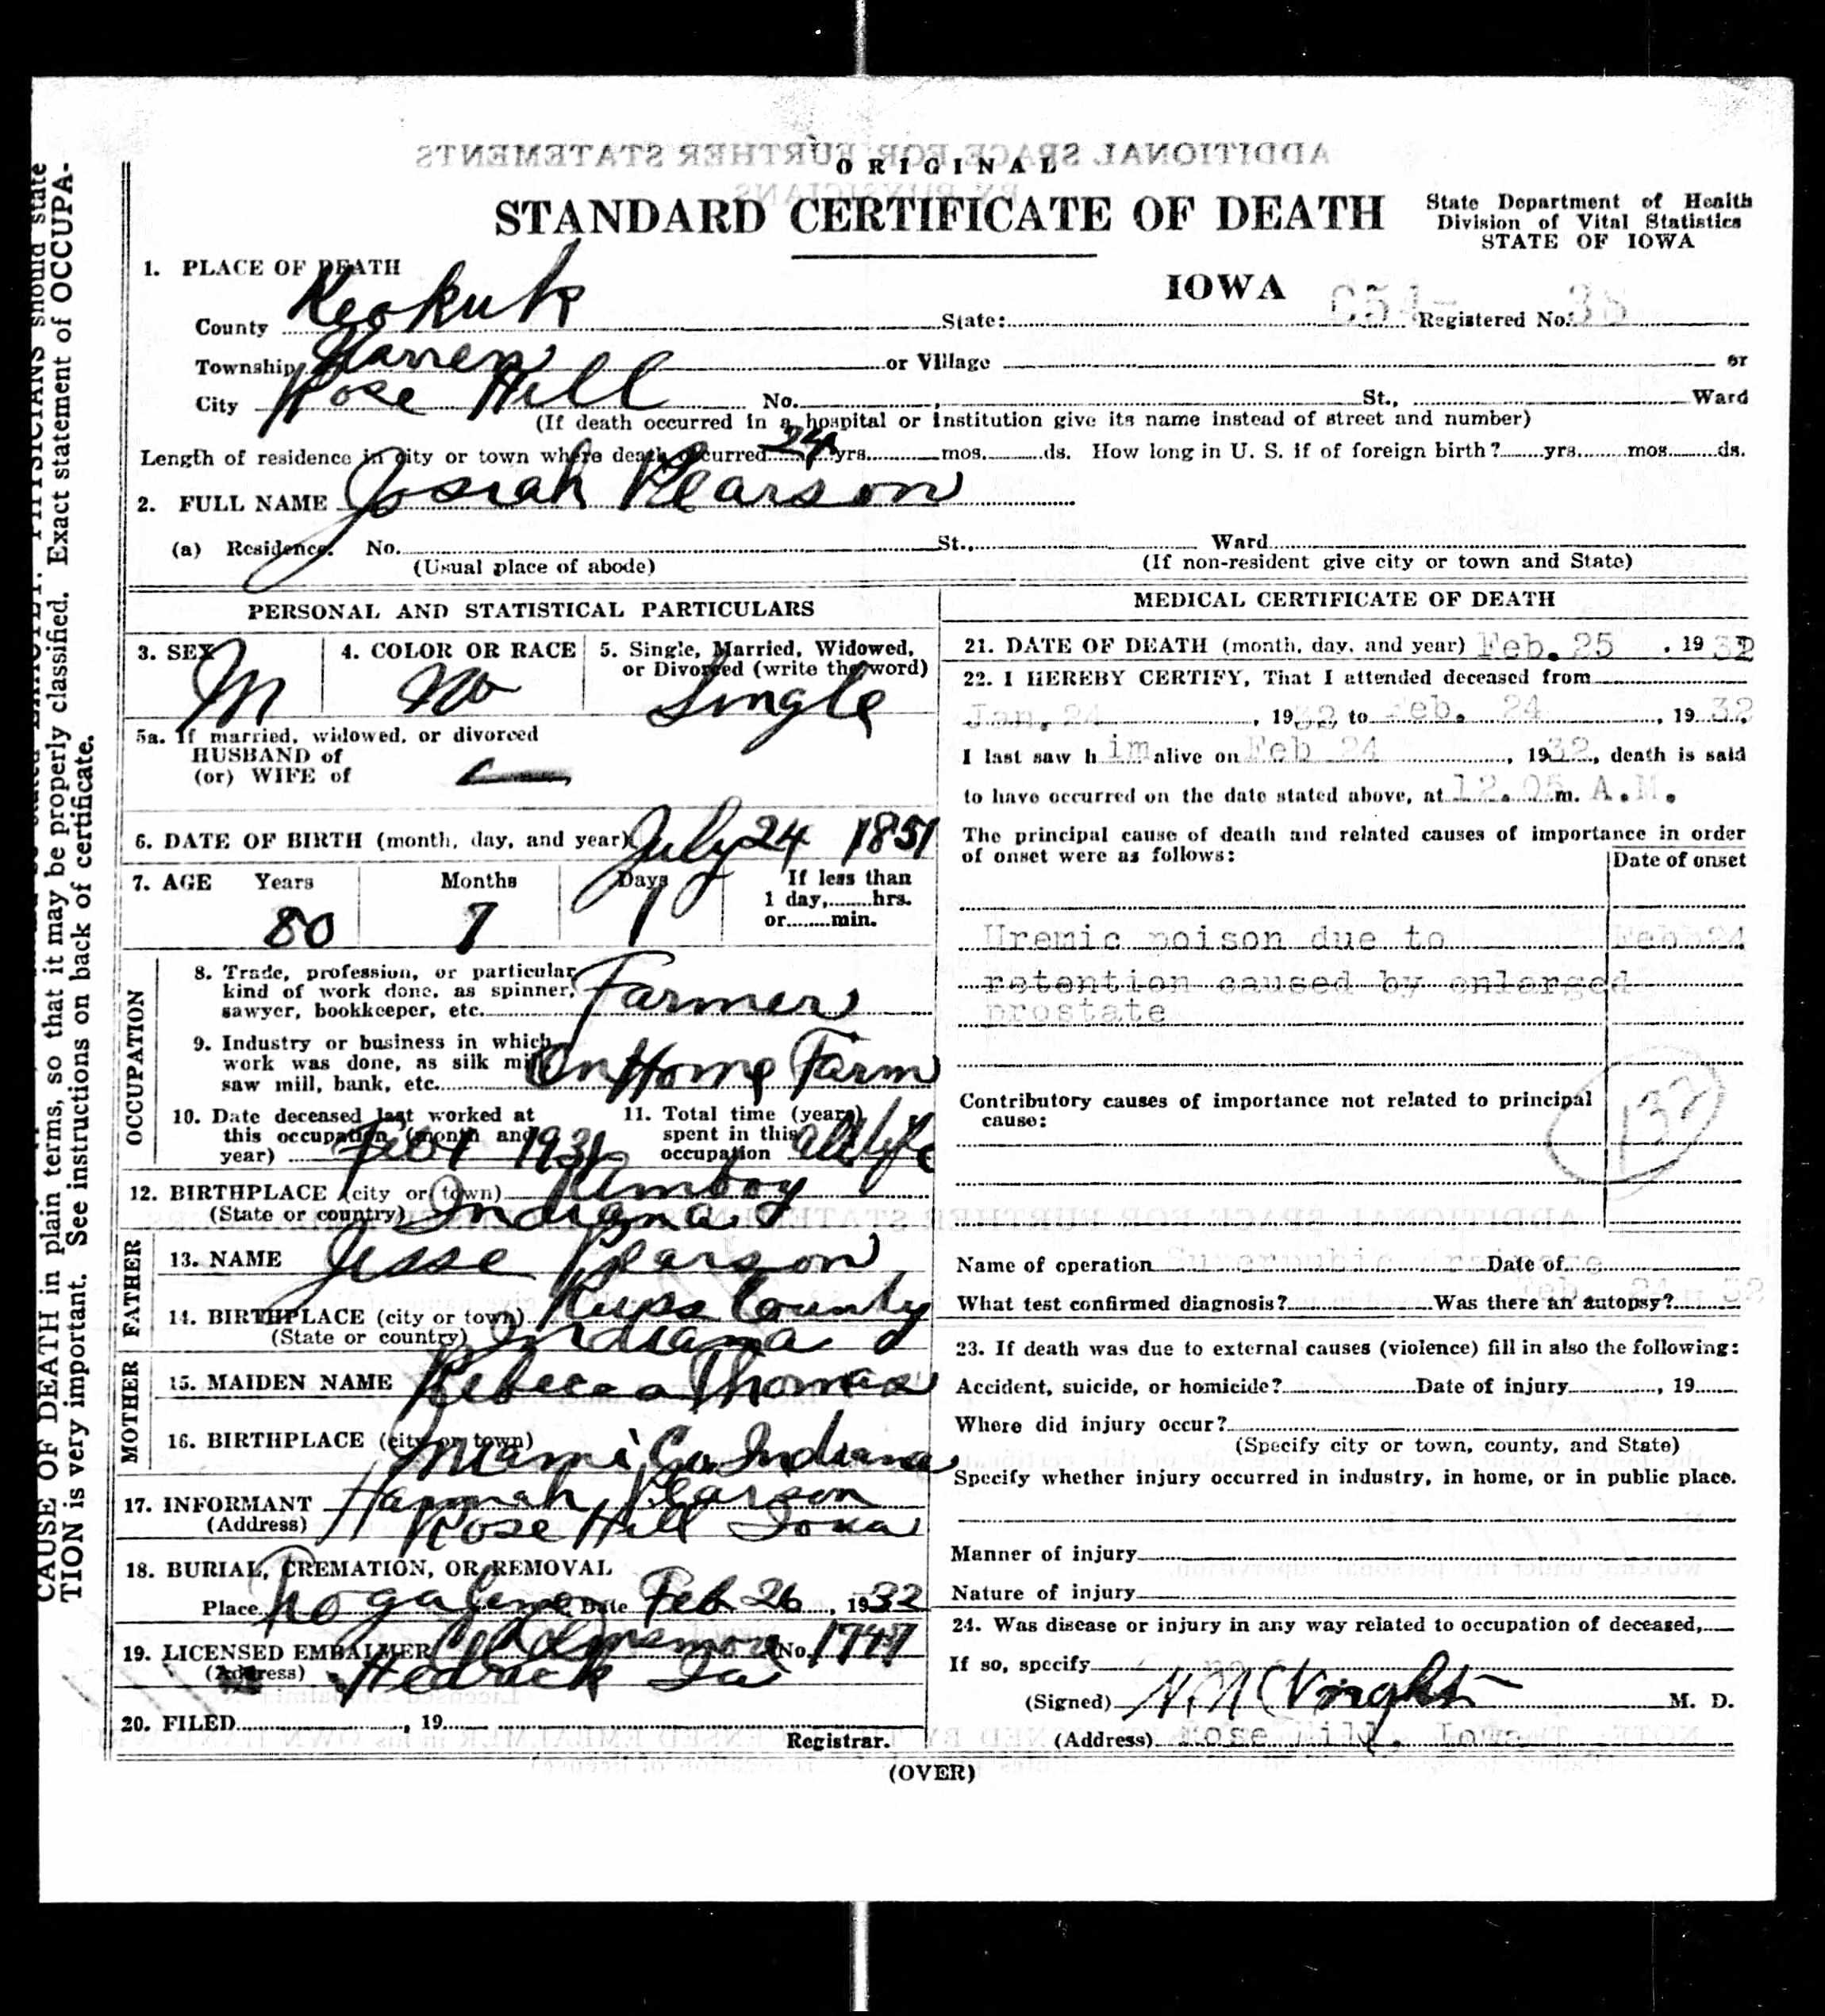 ADDITIONAL SPACE FOR FURTHER STATEMENTS
BY PHYSICIANS
ORIGINAL
STANDARD CERTIFICATE OF DEATH
State Department of Health
Division of Vital Statistics
STATE OF IOWA
IOWA
1. PLACE OF DEATH
County Keokuk State: Registered No. 38
Township Warren or Village or
City Rose Hill No. St., Ward
(If death occurred in a hospital or institution give its name instead of street and number)
Length of residence in city or town where death occurred 24 yrs. mos. ds. How long in U. S. if of foreign birth? yrs. mos. ds.
2. FULL NAME Josiah Pearson
(a) Residence. No. St., Ward
(Usual place of abode) (If non-resident give city or town and State)
PERSONAL AND STATISTICAL PARTICULARS
3. SEX M
4. COLOR OR RACE W
5. Single, Married, Widowed,
or Divorced (write the word)
Single
5a. If married, widowed, or divorced
HUSBAND of
(or) WIFE of
6. DATE OF BIRTH (month, day, and year) July 24 1851
7. AGE Years Months Days If less than
1 day, hrs.
or min.
80 7 1
OCCUPATION
8. Trade, profession, or particular
kind of work done, as spinner,
sawyer, bookkeeper, etc. Farmer
9. Industry or business in which
work was done, as silk mill,
saw mill, bank, etc. On Home Farm
10. Date deceased last worked at
this occupation (month and
year) Feb 1 1931
11. Total time (years)
spent in this
occupation all life
12. BIRTHPLACE (city or town) Amboy
(State or country) Indiana
FATHER
13. NAME Jesse Pearson
14. BIRTHPLACE (city or town) County
(State or country) Indiana
MOTHER
15. MAIDEN NAME Rebecca Thomas
16. BIRTHPLACE (city or town) Miami Co. Indiana
17. INFORMANT Hannah Pearson
(Address) Rose Hill Iowa
18. BURIAL, CREMATION, OR REMOVAL
Place Date Feb 26, 1932
19. LICENSED EMBALMER No. 1747
(Address) Hedrick Ia
20. FILED , 19
Registrar.
MEDICAL CERTIFICATE OF DEATH
21. DATE OF DEATH (month, day, and year) Feb. 25 . 19 32
22. I HEREBY CERTIFY, That I attended deceased from
Jan. 24 , 19 32 to Feb. 24 , 19 32
I last saw h im alive on Feb 24 , 19 32, death is said
to have occurred on the date stated above, at 12.05 m. A.M.
The principal cause of death and related causes of importance in order
of onset were as follows:
Date of onset
Uremic poison due to Feb 24
retention caused by enlarged
prostate
Contributory causes of importance not related to principal
cause:
Name of operation Date of
Feb. 24 32
What test confirmed diagnosis? Was there an autopsy?
23. If death was due to external causes (violence) fill in also the following:
Accident, suicide, or homicide? Date of injury , 19
Where did injury occur?
(Specify city or town, county, and State)
Specify whether injury occurred in industry, in home, or in public place.
Manner of injury
Nature of injury
24. Was disease or injury in any way related to occupation of deceased,
If so, specify
(Signed) Wright M. D.
(Address) Rose Hill, Iowa
(OVER)
CAUSE OF DEATH in plain terms, so that it may be properly classified. Exact statement of OCCUPA-
TION is very important. See instructions on back of certificate.